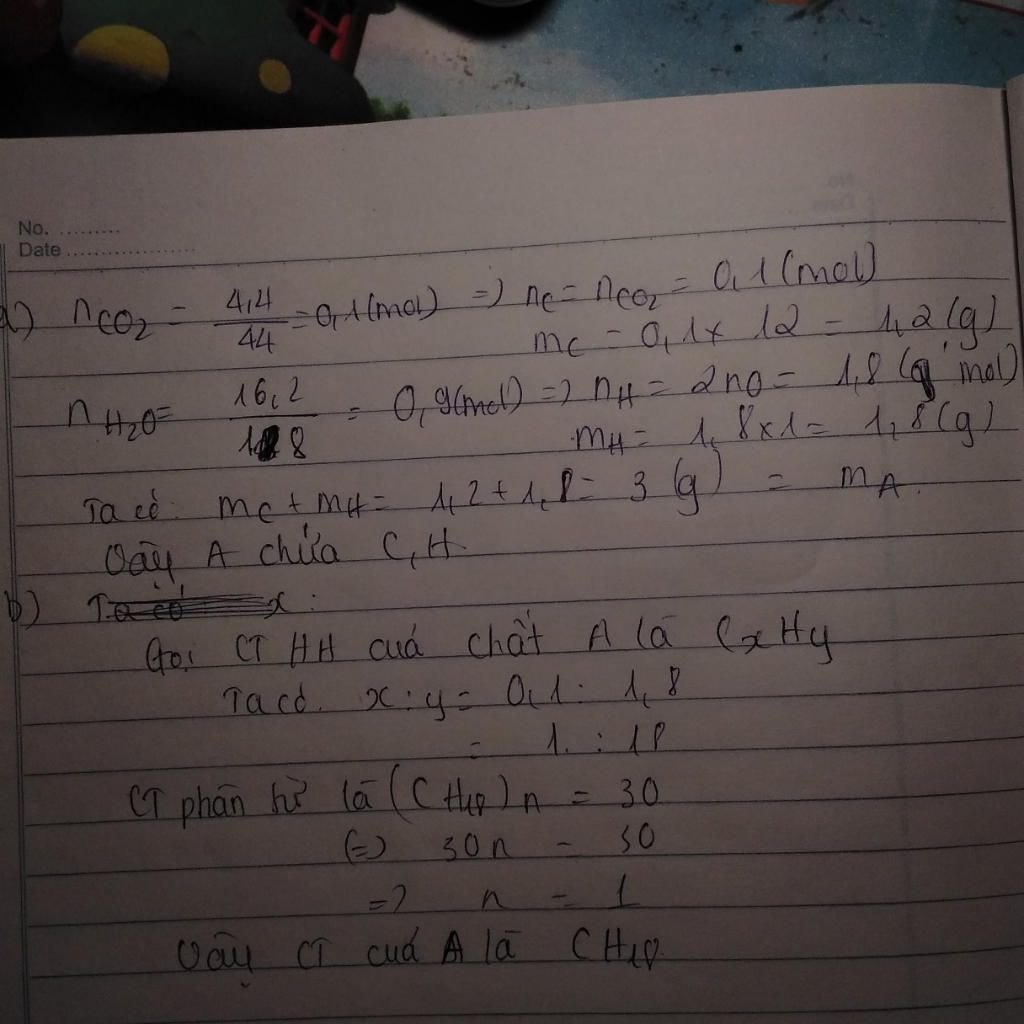 No. .........
Date ...................
a) nCO2 = 4,4/44 = 0,1 (mol) => nC = nCO2 = 0,1 (mol)
mC = 0,1 x 12 = 1,2 (g)
nH2O = 16,2/18 = 0,9 (mol) => nH = 2nO = 1,8 (mol)
mH = 1,8 x 1 = 1,8 (g)
Ta có: mC + mH = 1,2 + 1,8 = 3 (g) = mA.
Vậy A chứa C, H
b)
Gọi CTHH cuả chất A là CxHy
Ta có. x : y = 0,1 : 1,8
= 1 : 18
CT phân tử là (CH18)n = 30
(=) 30n = 30
=> n = 1
Vậy CT cuả A là CH18